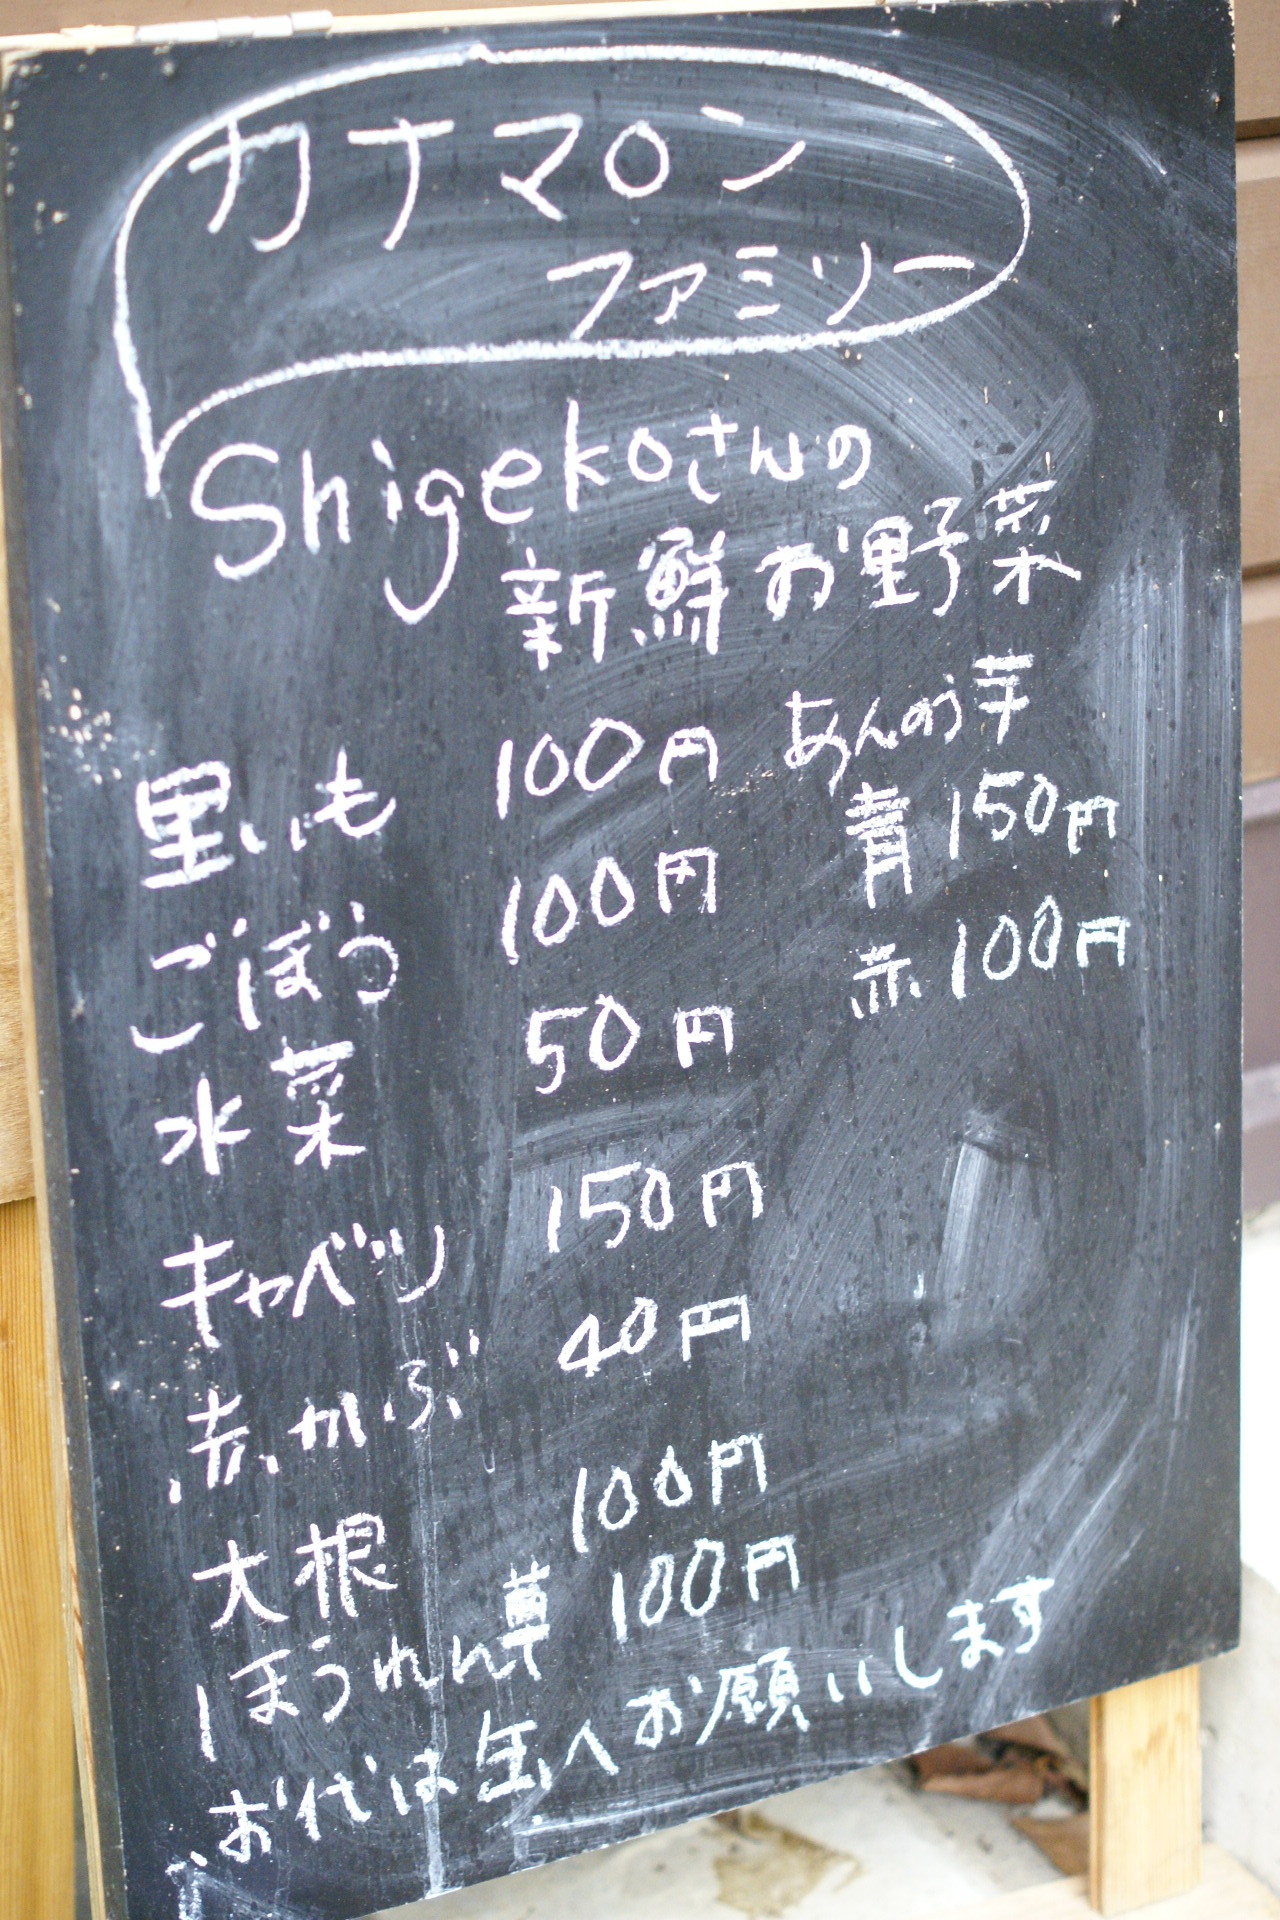 カナマロン
ファミリー
Shigekoさんの
新鮮お野菜
里いも 100円
ごぼう 100円
水菜 50円
キャベツ 150円
赤かぶ 40円
大根 100円
ほうれん草 100円
あんのう芋
青 150円
赤 100円
お代は缶へお願いします